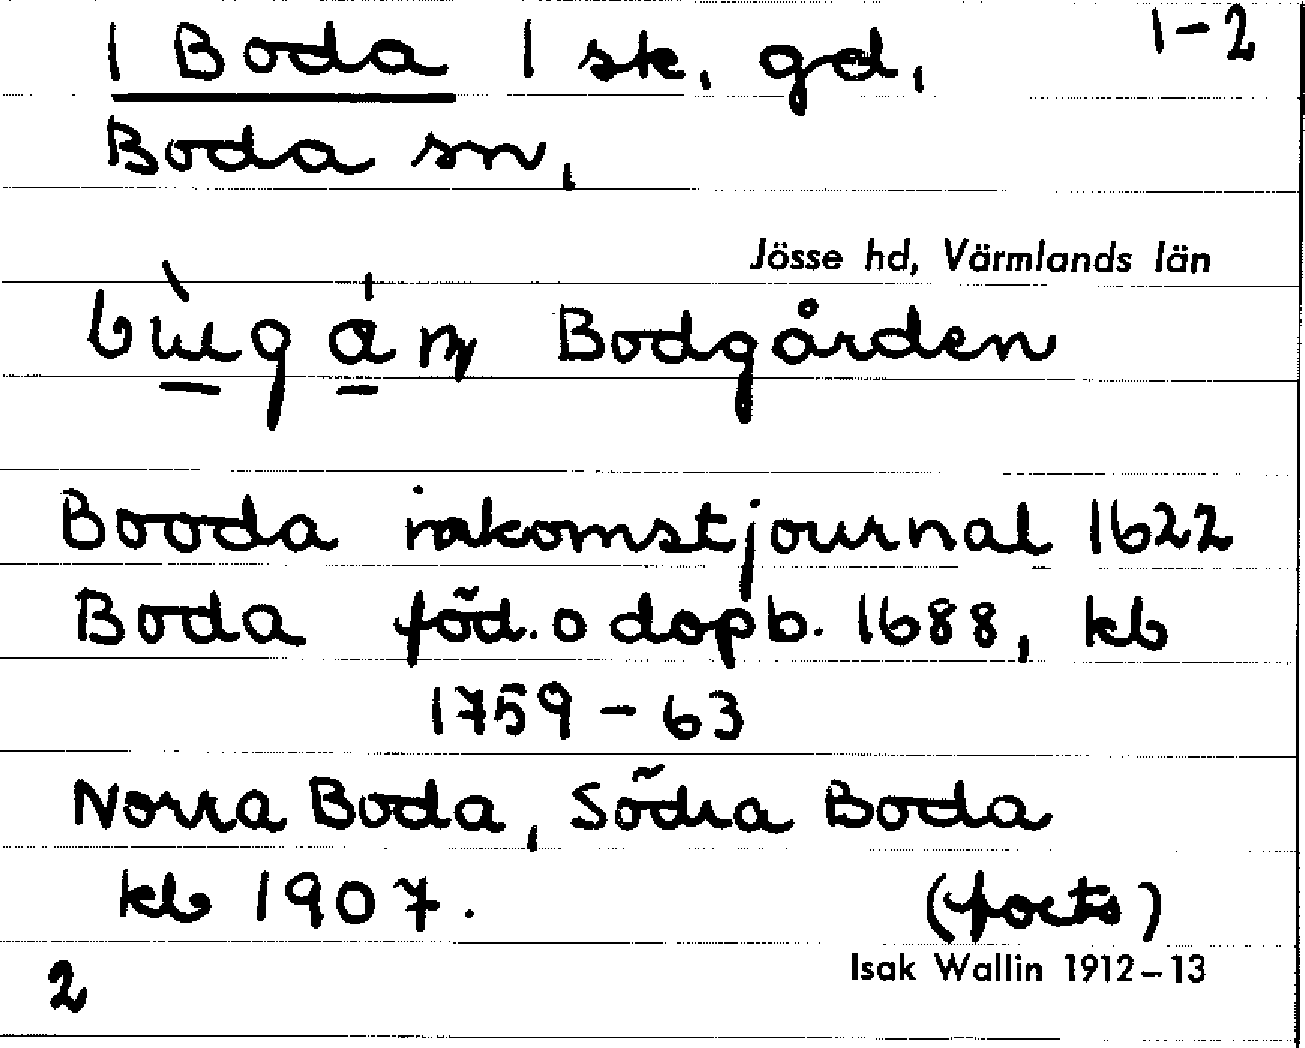 1 Boda 1 sk. gd, 1-2
Boda sn,
Jösse hd, Värmlands län
Bodgården
Booda inkomstjournal 1622
Boda föd. o dopb. 1688, kb
1759-63
Norra Boda, Södra Boda
kb 1907. (forts)
Isak Wallin 1912-13
2